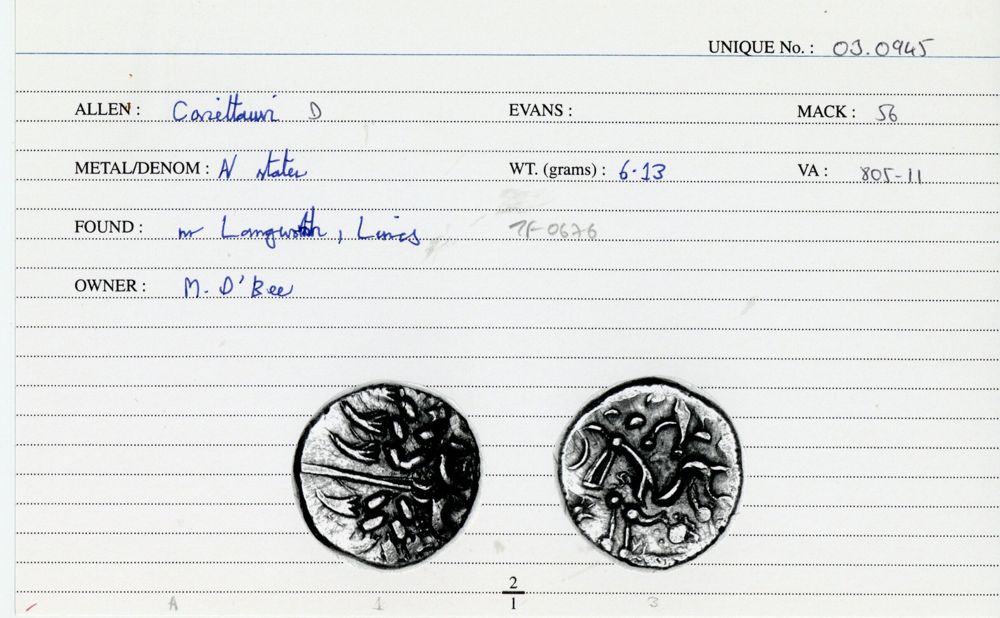 UNIQUE No. : 03.0945
ALLEN : Corieltauvi D EVANS : MACK : 56
METAL/DENOM : AV stater WT. (grams) : 6.13 VA : 805-11
FOUND : nr Langworth, Lincs TF 0676
OWNER : M. D'Bee
2
1
A 1 3